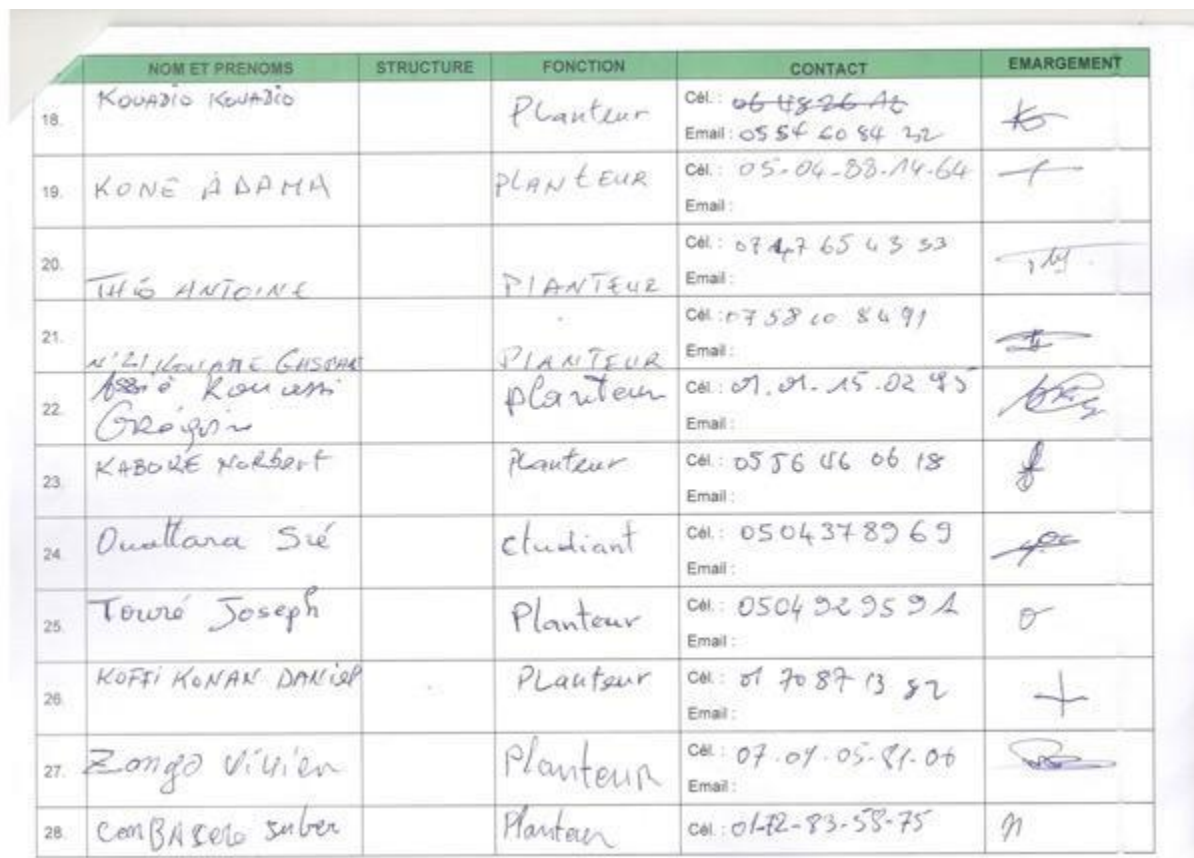 NOM ET PRENOMS STRUCTURE FONCTION CONTACT EMARGEMENT
18. KOUADIO KOUADIO Planteur Cél. : 06 48 26
Email : 05 54 60 84 22
19. KONE ADAMA PLANTEUR Cél. : 05-04-88-14-64
Email :
20. Cél. : 07 47 65 43 53
THIO ANTOINE PLANTEUR Email :
21. Cél. : 07 58 10 84 91
N'ZI KOUAME GASPAR PLANTEUR Email :
22. Assié Kouassi planteur Cél. : 01.01.15.02 95
Grégoire Email :
23. KABORE Norbert Planteur Cél. : 05 56 46 06 18
Email :
24. Ouattara Sié etudiant Cél. : 0504378969
Email :
25. Touré Joseph Planteur Cél. : 0504929591
Email :
26. KOFFI KONAN DANIEL PLanteur Cél. : 01 70 87 13 82
Email :
27. Zongo Vivien Planteur Cél. : 07.09.05.81.06
Email :
28. Planteur Cél. : 01-72-83-58-75